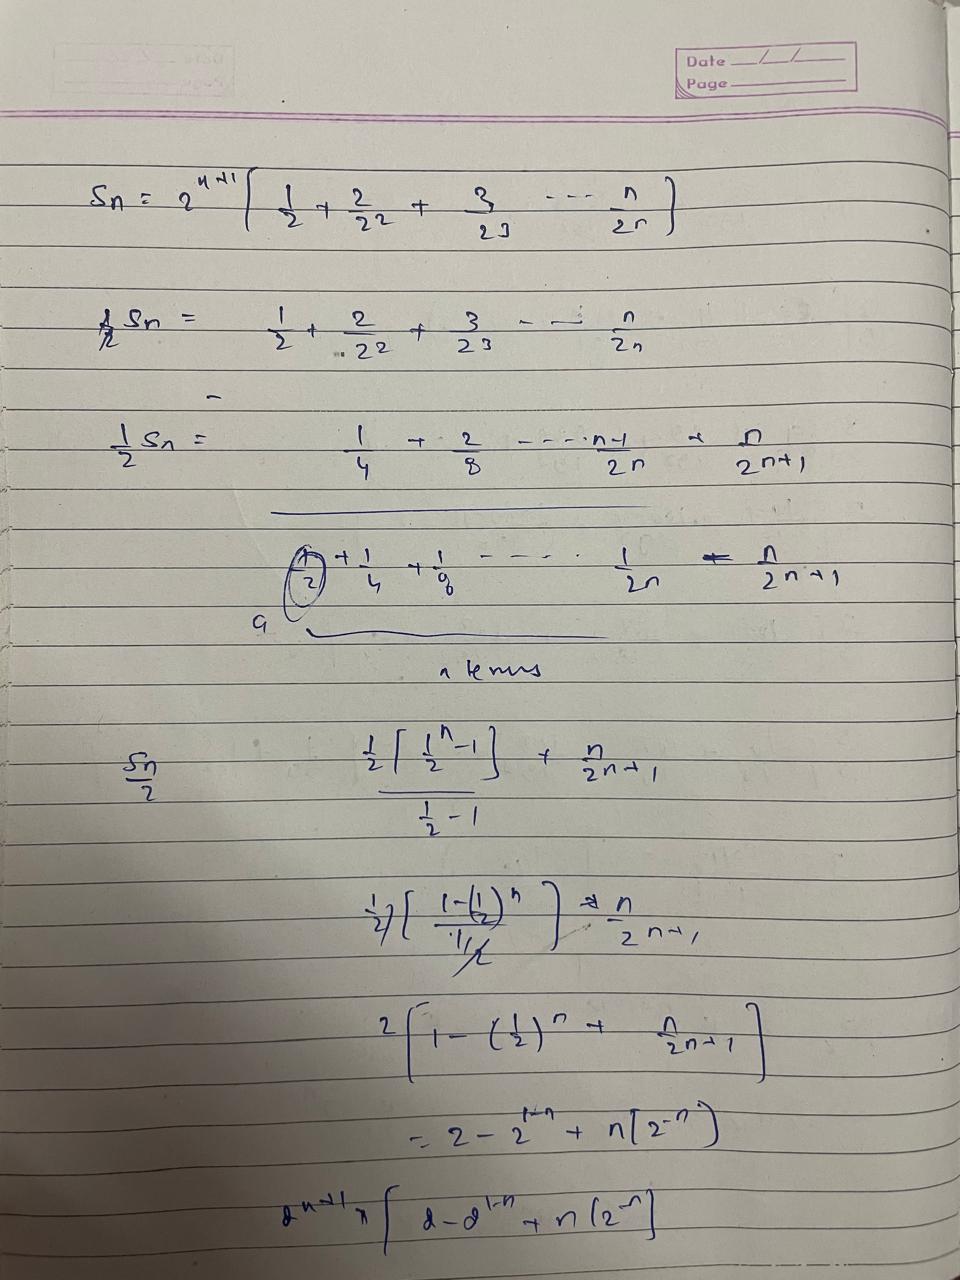 Date
Page
Sn = 2^{n+1} [ 1/2 + 2/2^2 + 3/2^3 --- n/2^n ]
Sn = 1/2 + 2/2^2 + 3/2^3 --- n/2^n
-
1/2 Sn = 1/4 + 2/8 ---- n-1/2^n + n/2^{n+1}
1/2 + 1/4 + 1/8 ---- 1/2^n n/2^{n+1}
a
n terms
Sn/2 1/2 [ 1/2^n - 1 ] / (1/2 - 1) + n/2^{n+1}
1/2 [ 1-(1/2)^n / 1/2 ] + n/2^{n+1}
2 [ 1 - (1/2)^n + n/2^{n+1} ]
= 2 - 2^{1-n} + n(2^{-n})
2^{n+1} x [ 2 - 2^{1-n} + n(2^{-n}) ]